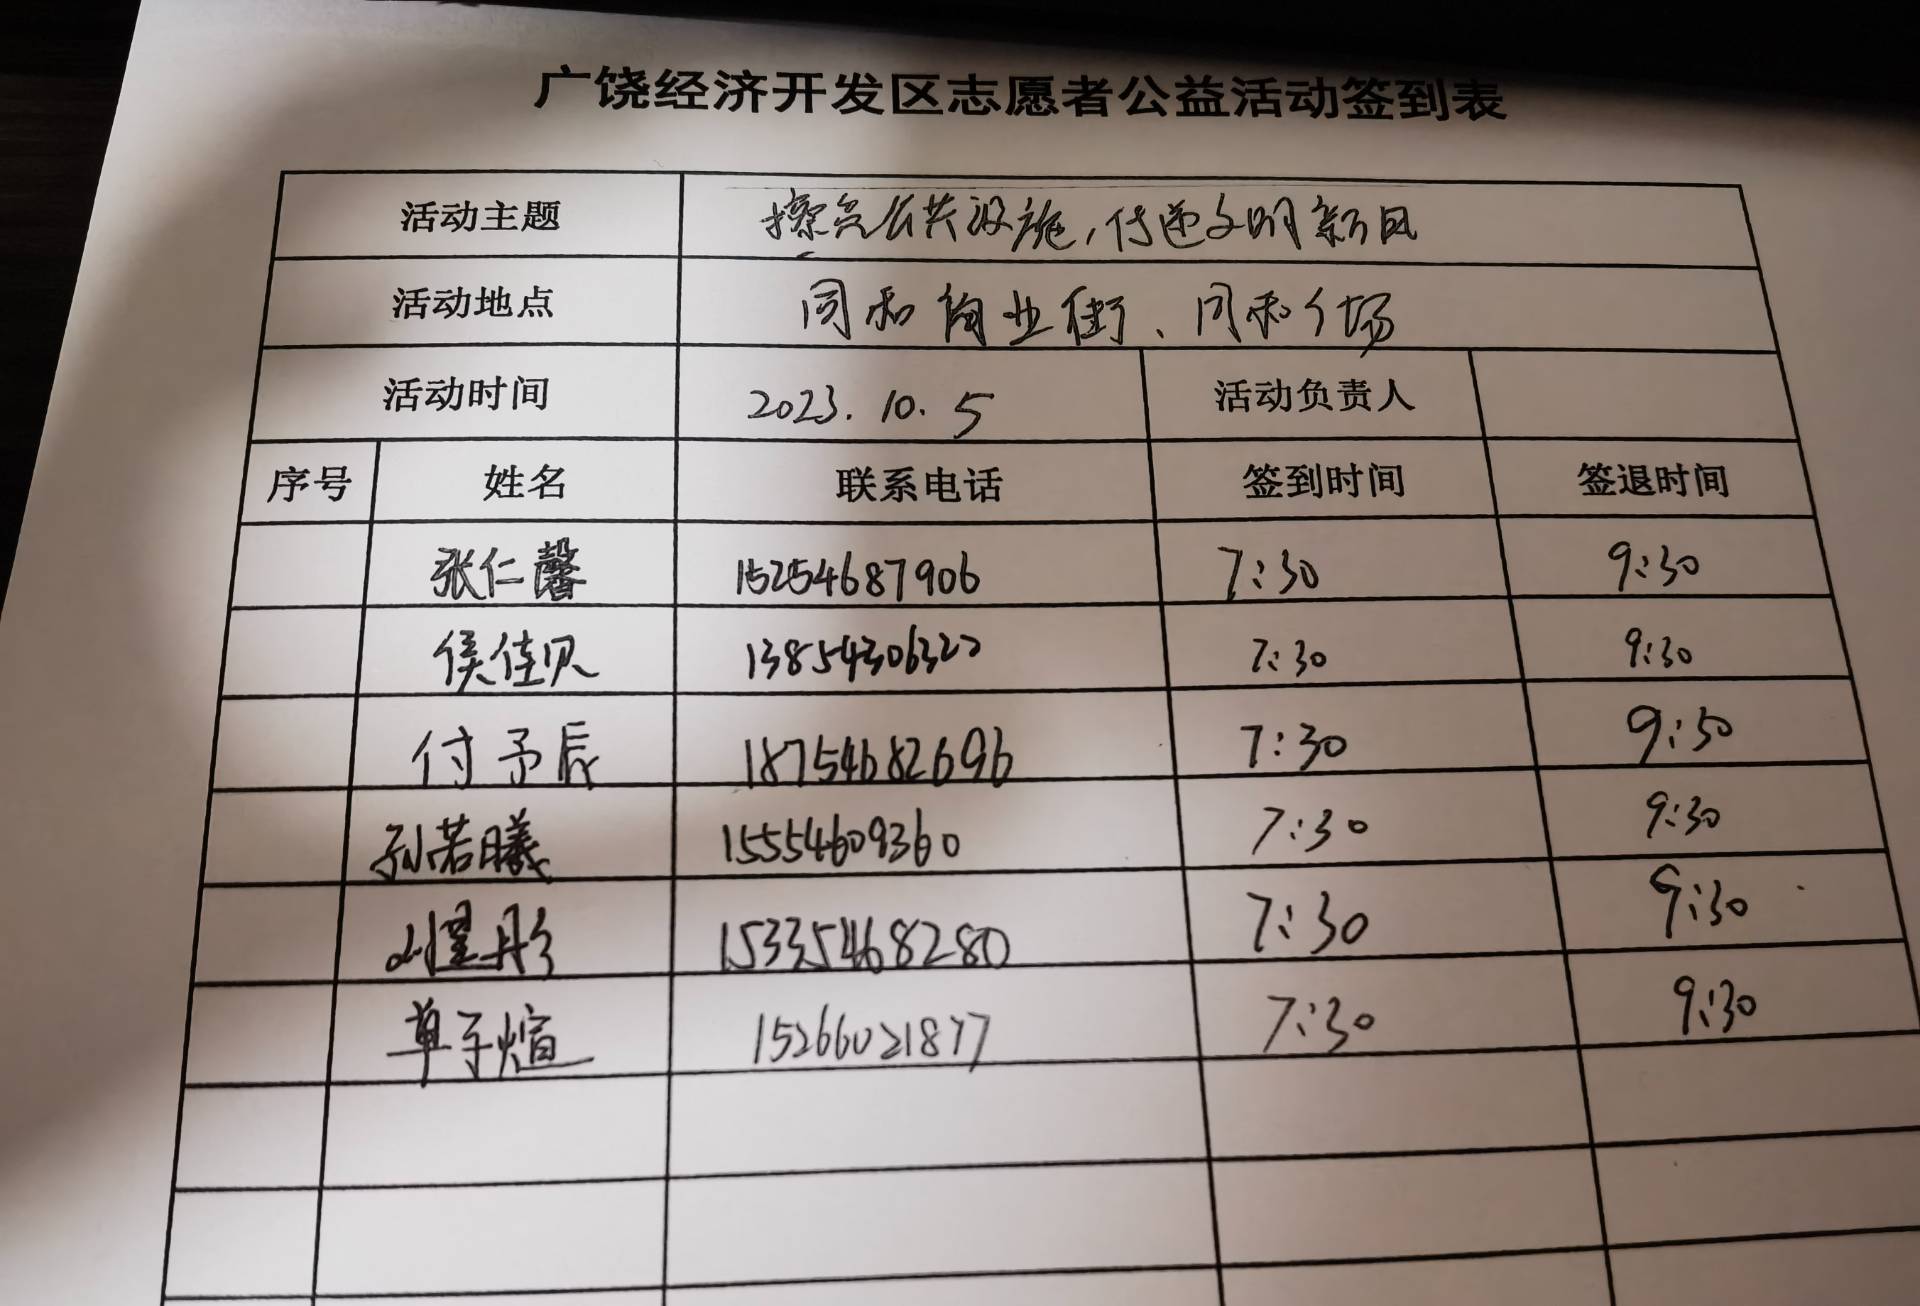 广饶经济开发区志愿者公益活动签到表
活动主题 擦亮公共设施,传递文明新风
活动地点 同和商业街、同和广场
活动时间 2023.10.5 活动负责人
序号 姓名 联系电话 签到时间 签退时间
张仁馨 15254687906 7:30 9:30
侯佳贝 13854306322 7:30 9:30
付予辰 18754682696 7:30 9:30
孙若曦 15554609360 7:30 9:30
彤 15335468280 7:30 9:30
单子煊 15266021877 7:30 9:30